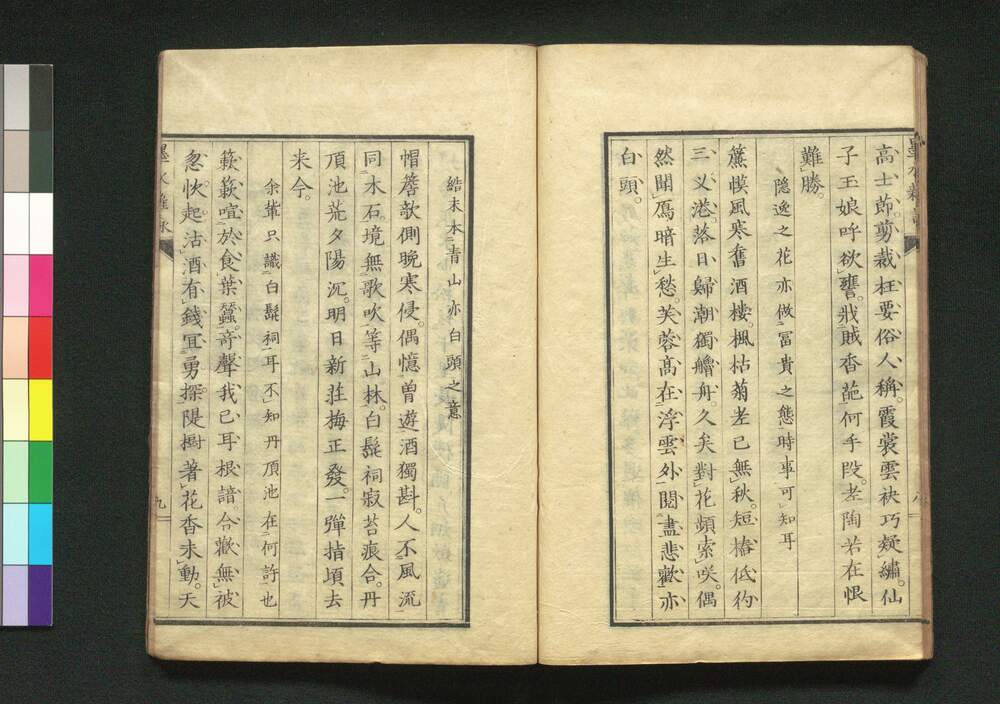 高士茆剪裁枉要俗人稱。霞裳雲袂巧疑繡。仙
子玉娘呼欲甕。戕賊香葩何手段。老陶若在恨
難勝。
隱逸之花亦做冨貴之態時事可知耳
簾幙風寒舊酒樓。楓枯菊老已無秋。短樁低約
三叉港。落日歸潮獨艪舟。久矣對花頻索咲。偶
然聞鴈暗生愁。芙蓉髙在浮雲外。閲盡悲歡亦
白頭。
八
結末本青山亦白頭之意
帽簷欹側晩寒侵。偶憶曽遊酒獨斟。人不風流
同木石。境無歌吹等山林。白髭祠寂苔痕合。丹
頂池荒夕陽沉。明日新莊梅正發。一彈指頃去
来今。
余輩只識白髭祠耳不知丹頂池在何許也
簌簌喧於食葉蠶。竒聲我已耳根諳。合歡無被
忽忺起。沽酒有錢宜勇探。隄樹著花香未動。天
九